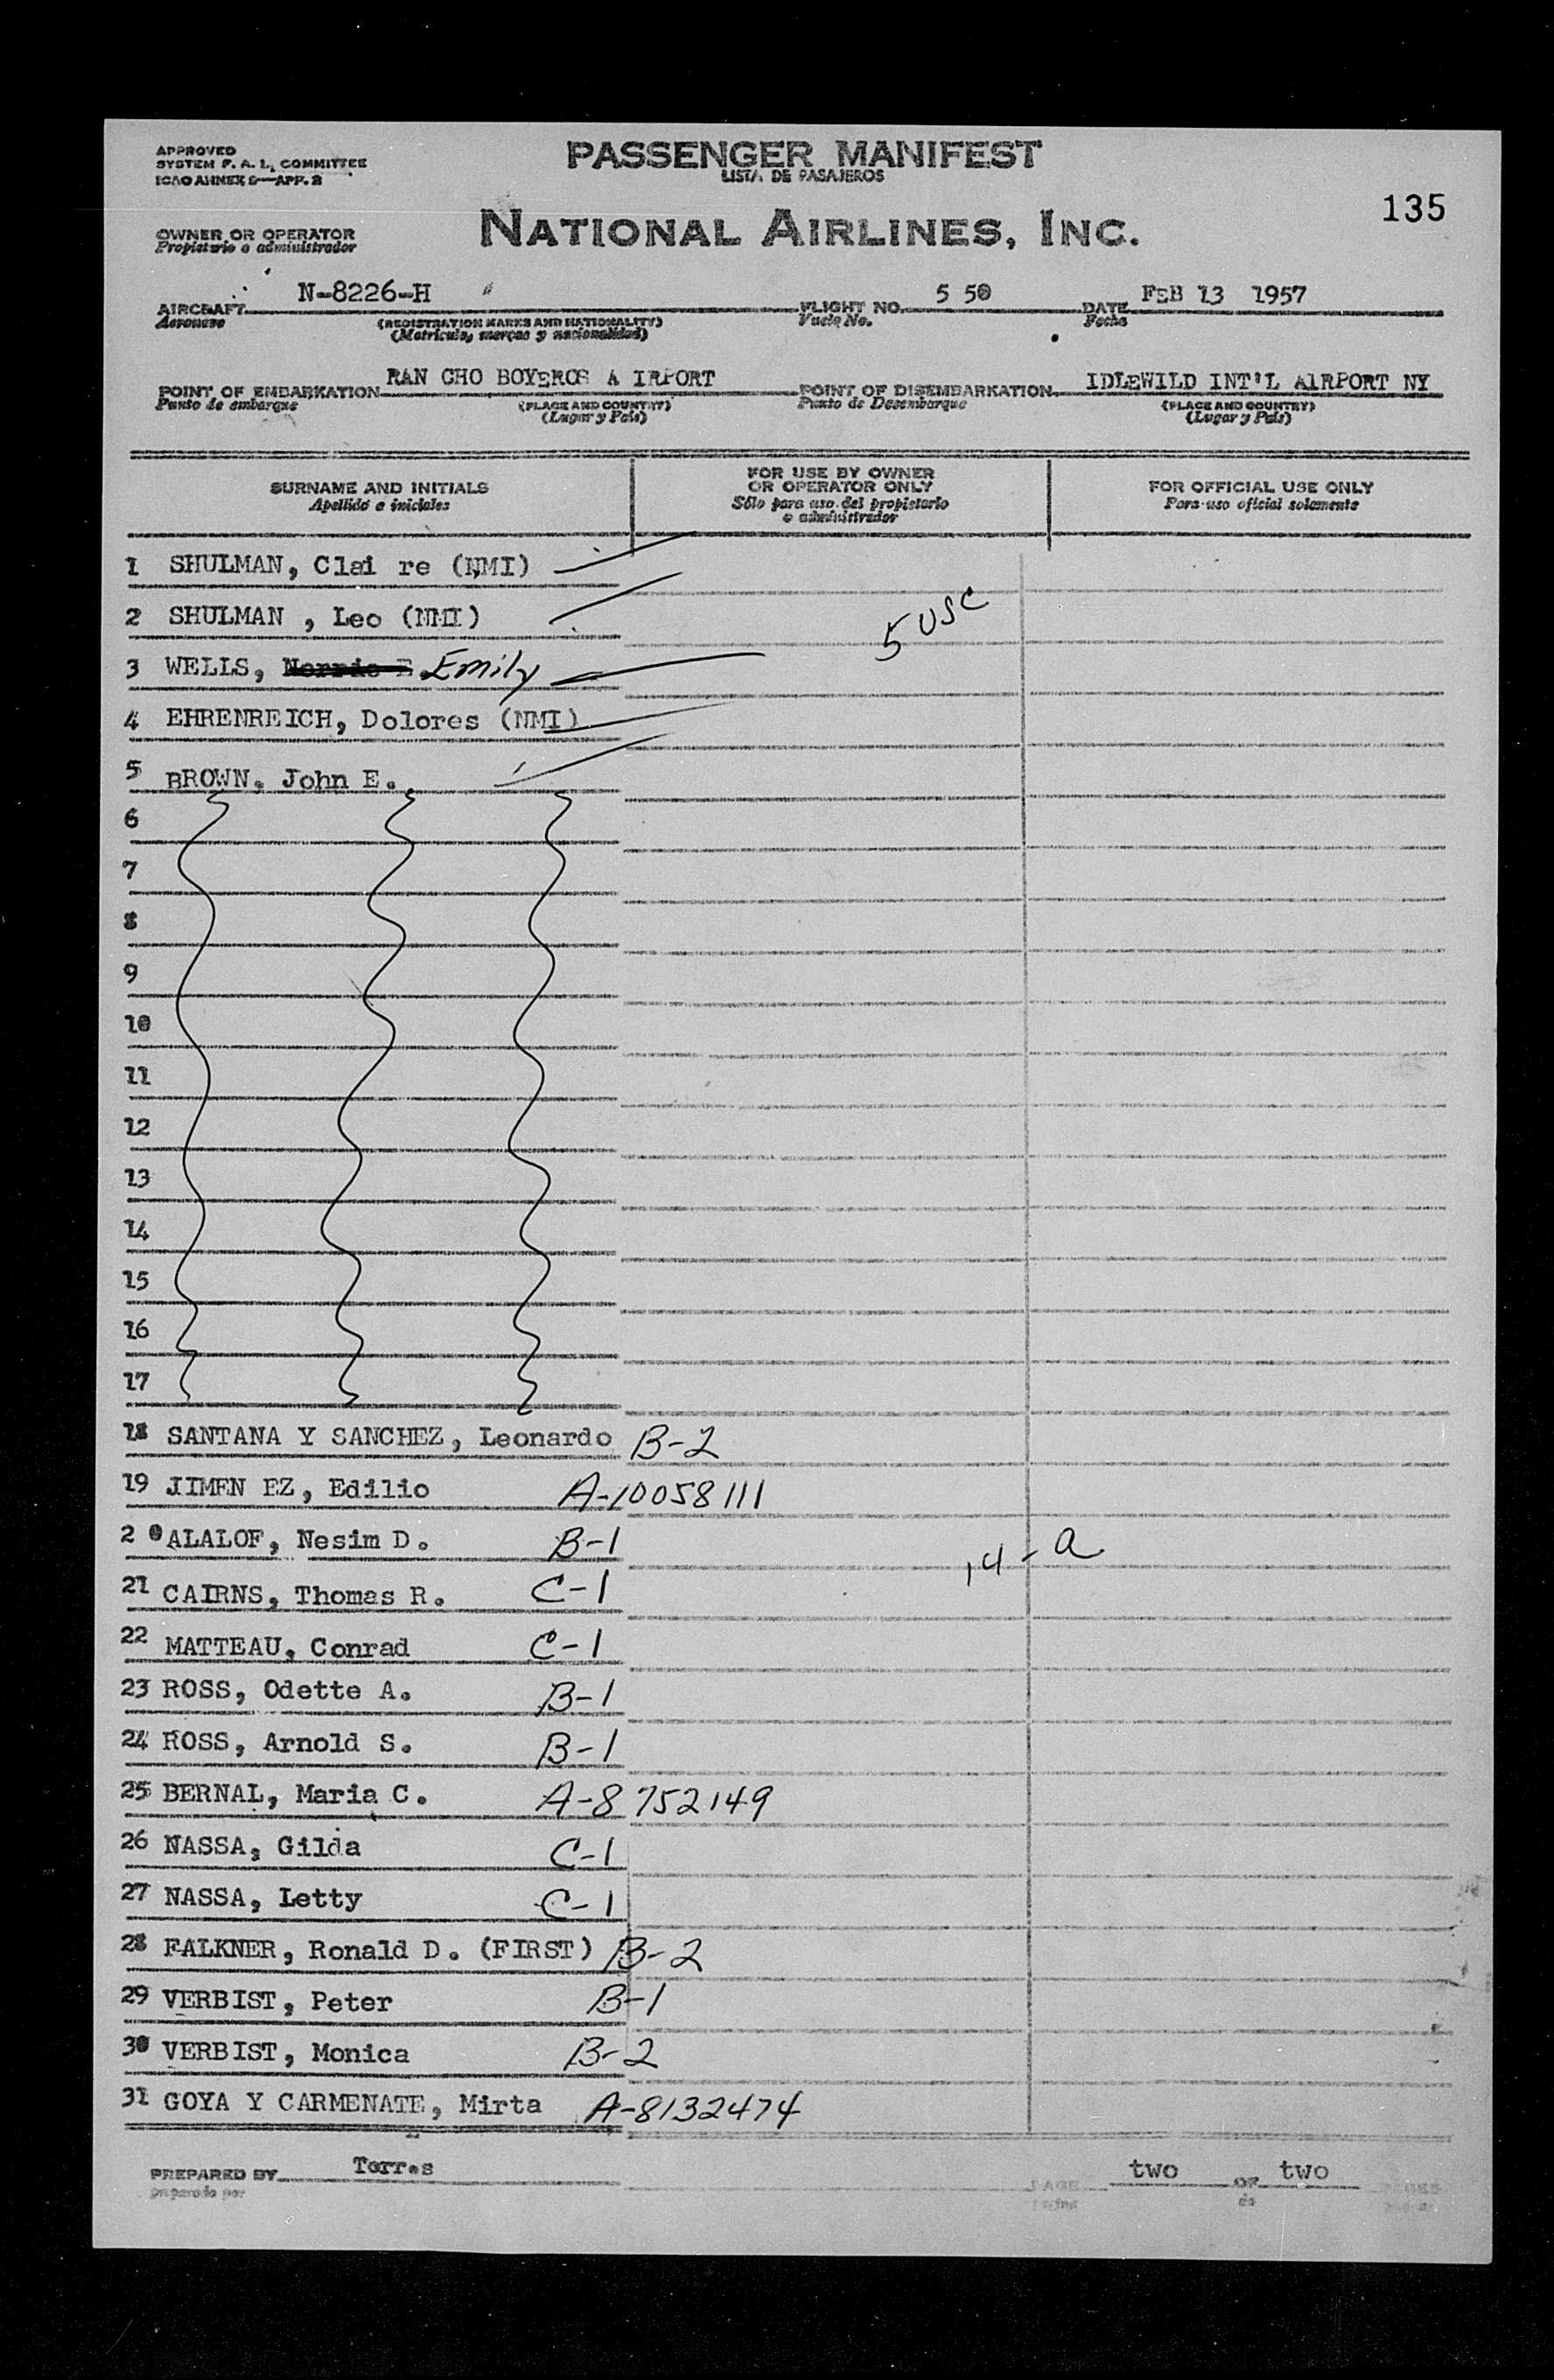 APPROVED
SYSTEM F. A. L. COMMITTEE
ICAO ANNEX 9—APP. 2
PASSENGER MANIFEST
LISTA DE PASAJEROS
135
OWNER OR OPERATOR
Propietario o administrador
NATIONAL AIRLINES, INC.
AIRCRAFT N-8226-H FLIGHT NO. 5 50 DATE FEB 13 1957
Aeronave (REGISTRATION MARKS AND NATIONALITY) Vuelo No. Fecha
(Matricula, marcas y nacionalidad)
POINT OF EMBARKATION RAN CHO BOYEROS A IRPORT POINT OF DISEMBARKATION IDLEWILD INT'L AIRPORT NY
Punto de embarque (PLACE AND COUNTRY) Punto de Desembarque (PLACE AND COUNTRY)
(Lugar y País) (Lugar y País)
SURNAME AND INITIALS
Apellido e iniciales
FOR USE BY OWNER
OR OPERATOR ONLY
Sólo para uso del propietario
o administrador
FOR OFFICIAL USE ONLY
Para uso oficial solamente
1 SHULMAN, Clai re (NMI)
2 SHULMAN , Leo (NMI) 5 USC
3 WELLS, Emily
4 EHRENREICH, Dolores (NMI)
5 BROWN. John E.
6
7
8
9
10
11
12
13
14
15
16
17
18 SANTANA Y SANCHEZ, Leonardo B-2
19 JIMEN EZ, Edilio A-10058111
2 0 ALALOF, Nesim D. B-1 14-a
21 CAIRNS, Thomas R. C-1
22 MATTEAU, Conrad C-1
23 ROSS, Odette A. B-1
24 ROSS, Arnold S. B-1
25 BERNAL, Maria C. A-8752149
26 NASSA, Gilda C-1
27 NASSA, Letty C-1
28 FALKNER, Ronald D. (FIRST) B-2
29 VERBIST, Peter B-1
30 VERBIST, Monica B-2
31 GOYA Y CARMENATE, Mirta A-8132474
PREPARED BY Torres PAGE two OF two PAGES
preparado por de